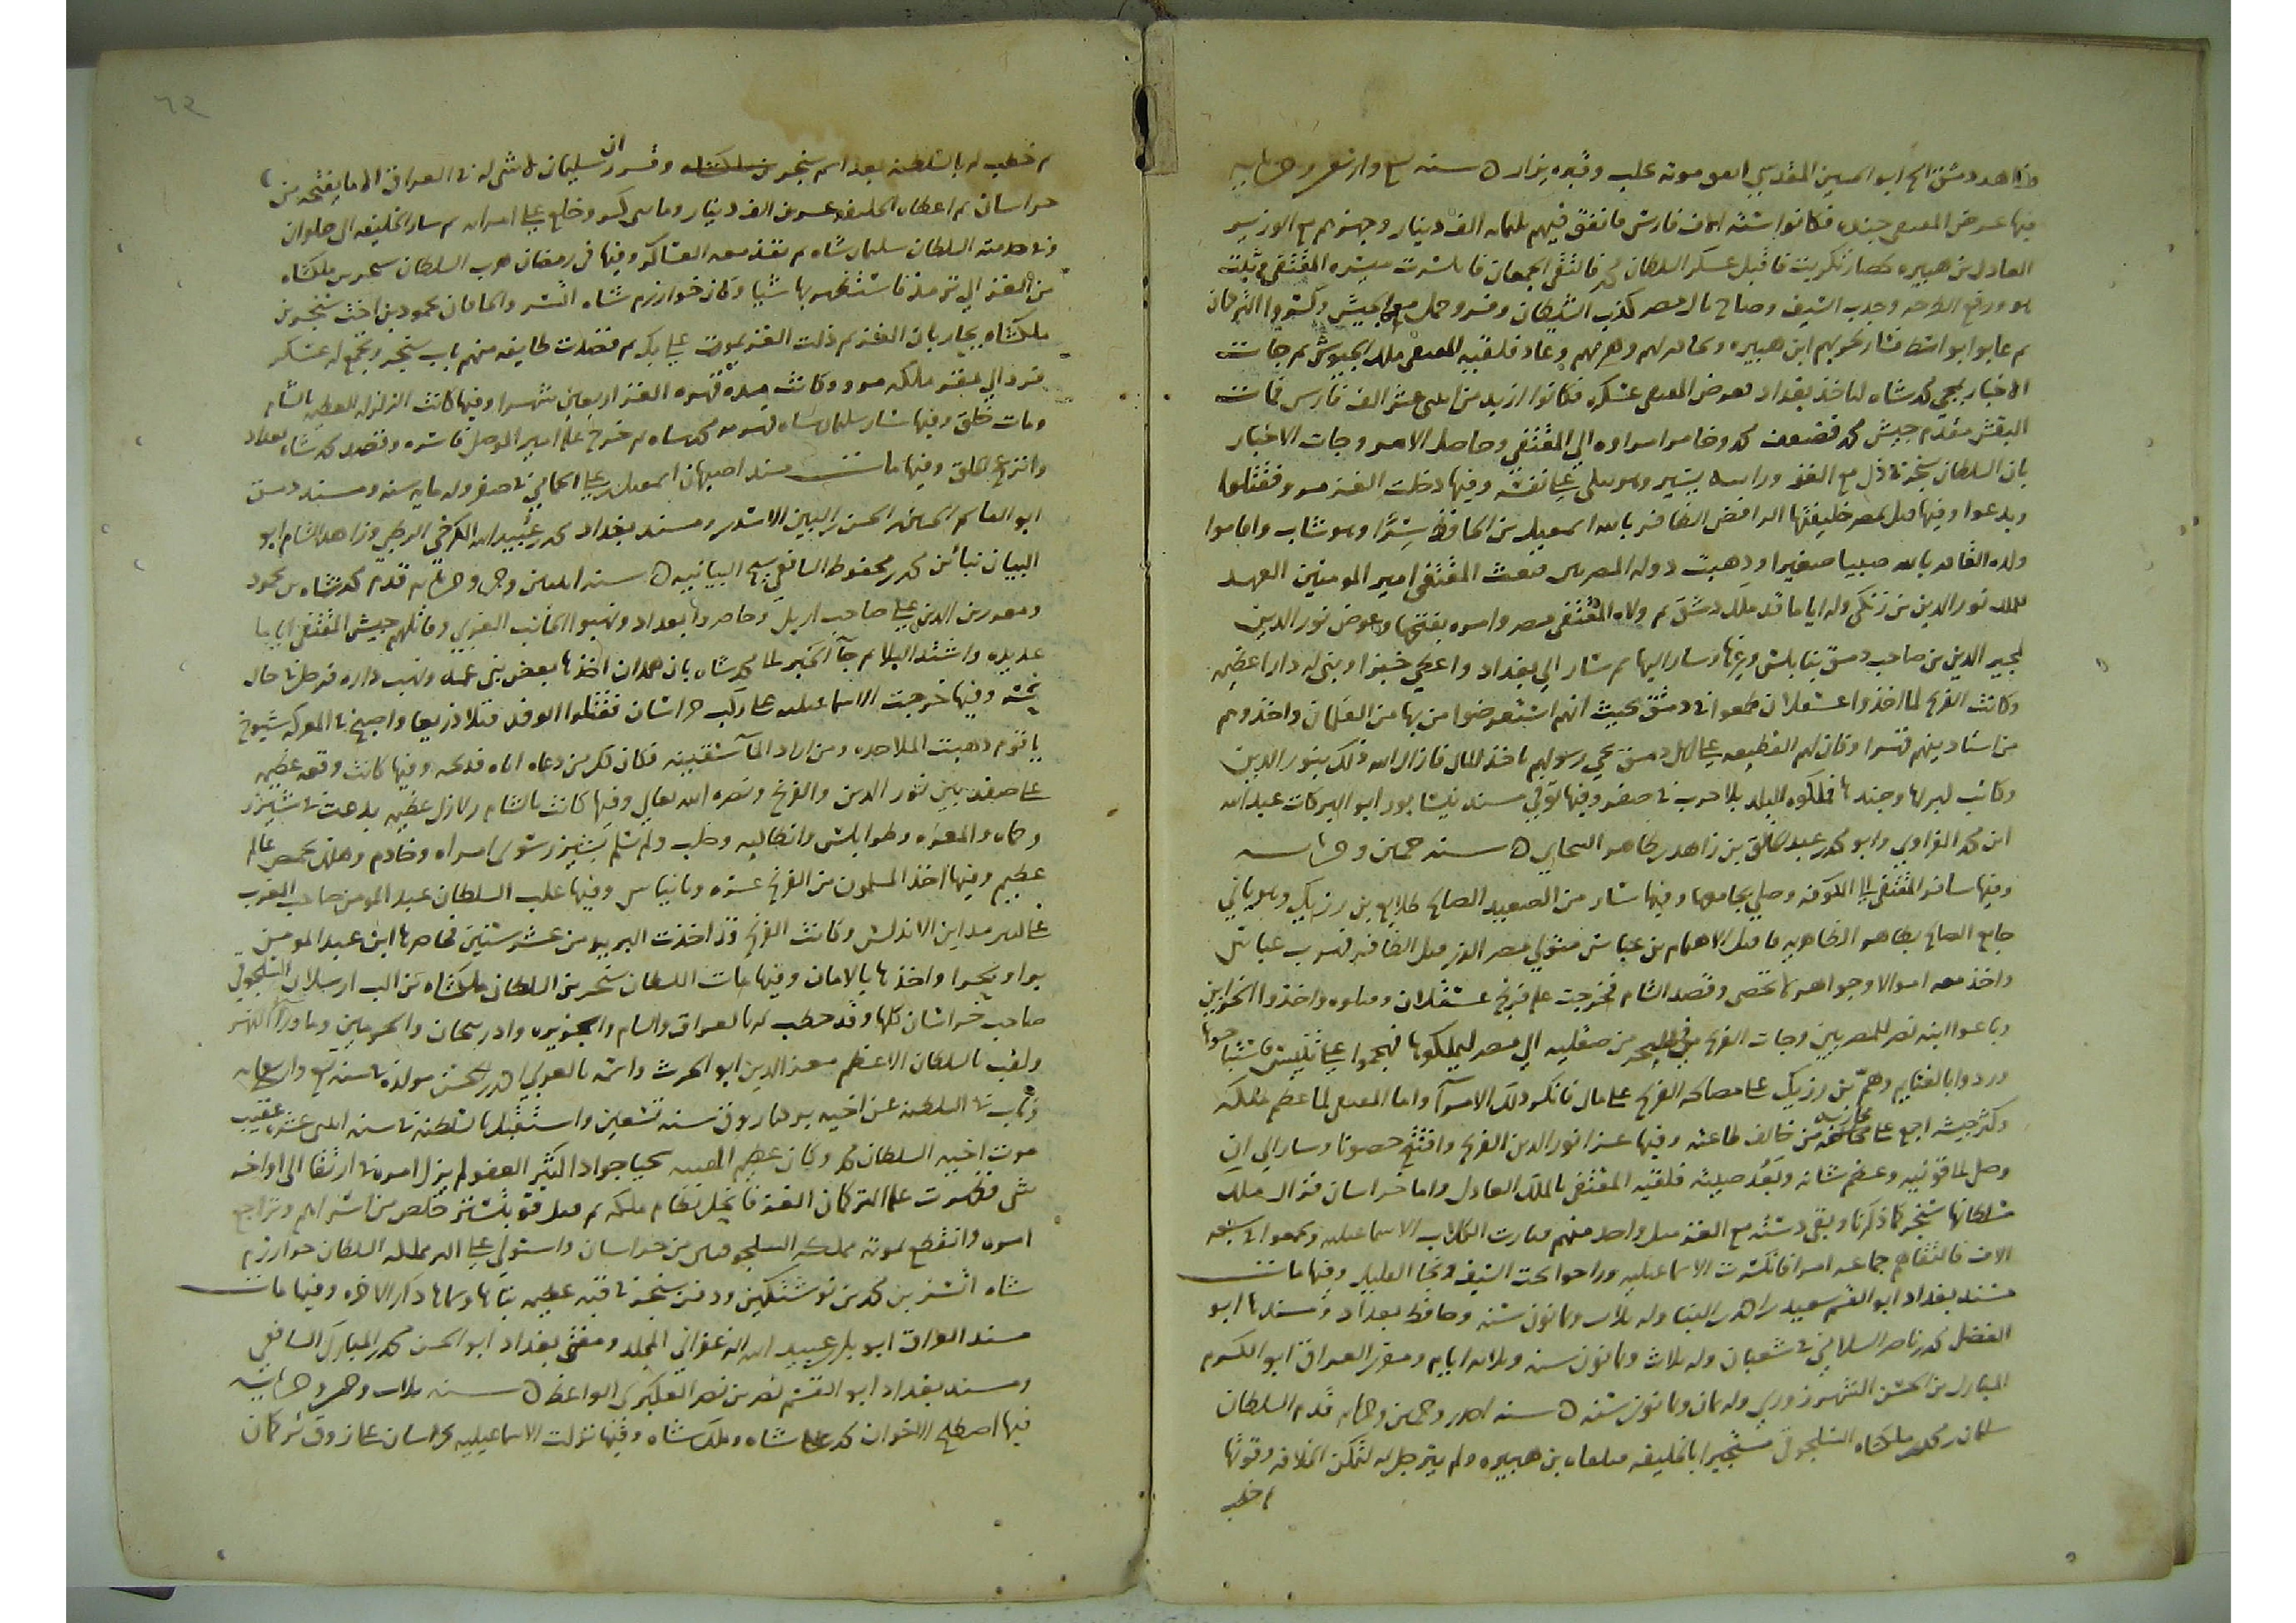 وزاهد دمشق الشيخ ابو الحسين المقدسي موته بحلب وقبره يزار ه سنه تسع واربعين وخمسمايه
فيها عرض المقتفي جنده فكانوا ستة الاف فارس فانفق فيهم ثلثمايه الف دينار وجهزهم مع الوزير
العادل بن هبيره لحصار تكريت فاقبل عسكر السلطان محمد فالتقى الجمعان فانكسرت ميسره المقتفي فثبت
هو ورفع الطرحه وجذب السيف وصاح يال مضر كذب الشيطان وفر وحمل مع الجيش وكسروا التركمان
الاخبار بمجي محمد شاه لياخذ بغداد فعرض المقتفي عسكره فكانوا ازيد من اثنى عشر الف فارس فمات
البقش مقدم جيش محمد فضعف محمد وخامر امراوه الى المقتفي وحاصل الامر وجات الاخبار
بان السلطان سنجر في ذل مع الغز وراسه يسير وهو يبكي على نفسه وفيها دخلت الغز مرو وقتلوا
وبدعوا وفيها قتل بمصر خليفتها الرافضي الظافر بالله اسمعيل بن الحافظ سرا وهو شاب واقاموا
ولده الفايز بالله صبيا صغيرا وذهبت دوله المصريين فبعث المقتفي امير المومنين العهد
للملك نور الدين بن زنكي وله اياما قد ملك دمشق ثم ولاه المقتفي مصر وامره بفتحها وعوض نور الدين
لمجير الدين بن صاحب دمشق بنابلس وغيرها وسار اليها ثم سار الى بغداد واعطي خبزا وبنى له دارا عظيمه
وكانت الفرنج لما اخذوا عسقلان طمعوا في دمشق بحيث انهم استعرضوا من بها من الغلمان واخذوهم
من استاديهم قهرا وكان لهم القطيعه على اهل دمشق يجي رسولهم ياخذ المال فازال الله ذلك بنور الدين
وكاتب اهلها وجندها فملكوه البلد بلا حرب في صفر وفيها توفي مسند نيسابور ابو البركات عبد الله
ابن محمد الفراوي وابو محمد عبد الخالق بن زاهر بن طاهر الشحامي ه سنه خمسين وخمسمايه
وفيها سافر المقتفي الى الكوفه وصلي بجامعها وفيها سار من الصعيد الصالح طلايع بن رزيك وهو باني
جامع الصالح بظاهر القاهره فاقبل للاهتمام بن عباس متولي مصر الذي قتل الظافر فهرب عباس
واخذ معه اموالا وجواهر لا تحصى وقصد الشام فخرجت عليه فرنج عسقلان وقتلوه واخذوا الخزاين
وباعوا ابنه نصر للمصريين وجات الفرنج في البحر من صقليه الى مصر ليملكوها فهجموا على تنيس فاستباحوها
وردوا بالغنايم وهم بن رزيك على مصالحه الفرنج على مال فانكر ذلك الامرا واما المقتفي لما عظم ملكه
وكثر جيشه اجمع على محاربه من خالف طاعته وفيها غزا نور الدين الفرنج وافتتح حصونا وسار الى ان
وصل لقونيه وعظم شانه وبعد صيته فلقبه المقتفي بالملك العادل واما خراسان فزال ملك
سلطانها سنجر كما ذكرنا وبقي دسته مع الغز واحد منهم فثارت الكلاب الاسماعيليه وتجمعوا في سبعه
الاف فالتقاهم جماعه امرا فانكسرت الاسماعيليه وراحوا تحت السيف ونجا القليل وفيها مات
مسند بغداد ابو القسم سعيد بن احمد بن البنا وله ثلاث وثمانون سنه وحافظ بغداد ومسندها ابو
الفضل محمد بن ناصر السلامي في شعبان وله ثلاث وثمانون سنه وثلاثه ايام ومقري العراق ابو الكرم
المبارك بن الحسن الشهرزوري وله ثمان وثمانون سنه ه سنه احدى وخمسين وخمسمايه قدم السلطان
سليمان بن محمد بن ملكشاه السلجوقي مستجيرا بالخليفه فتلقاه بن هبيره ولم يترجل له لتمكن الخلافه وقوتها
ثم خطب
٦٢
ثم خطب له بالسلطنه بعد اسم سنجر بن ملكشاه وقرر ان سليمان لا شي له في العراق الا ما يفتحه من
خراسان ثم اعطاه الخليفه عشرين الف دينار ومايتي كر وخلع على امرائه ثم سار الخليفه الى حلوان
وفي خدمته السلطان سليمان شاه ثم نفذ معه العساكر وفيها في رمضان هرب السلطان سنجر بن ملكشاه
من الغز الى ترمذ فاستظهر بها شيا وكان خوارزم شاه اتسز والخاقان محمود بن اخت سنجر بن
ملكشاه يحاربان الغز ثم ذلت الغز بموت علي بك ثم قصدت طايفه منهم باب سنجر وتجمع له عسكر
فرد الى مقر ملكه مرو وكانت مده قهره الغز اربعين شهرا وفيها كانت الزلزله العظيمه بالشام
ومات خلق وفيها سار سليمان شاه فهزمه محمد شاه ثم خرج عليه امير الموصل فاسره وقصد محمد شاه بغداد
وانزعج الخلق وفيها مات مسند اصبهان اسمعيل بن علي الحمامي في صفر وله مايه سنه ومسند دمشق
ابو القاسم الحسين بن الحسن بن البن الاسدي ومسند بغداد محمد بن عبيد الله الكرخي الرطبي وزاهد الشام ابو
البيان نبا بن محمد بن محفوظ الشافعي شيخ البيانيه ه سنه اثنتين وخمسين وخمسمايه قدم محمد شاه بن محمود
ومعه زين الدين علي صاحب اربل وحاصروا بغداد ونهبوا الجانب الغربي وقاتلهم جيش المقتفي اياما
عديده واشتد البلا ثم جا الخبر الى محمد شاه بان همدان اخذها بعض بني عمه ونهب داره فرحل في حال
نحسه وفيها خرجت الاسماعيليه على ركب خراسان فقتلوا الوفد قتلا ذريعا واصبح في المعركه شيوخ
يا قوم ذهبت الملاحده ومن اراد الما سقيته فكان كل من دعاه اتاه فذبحه وفيها كانت وقعه عظيمه
على صفد بين نور الدين والفرنج ونصره الله تعالى وفيها كانت بالشام زلازل عظيمه بدعت في شيزر
وحماه والمعره وطرابلس وانطاكيه وحلب ولم يسلم بشيزر سوى امراه وخادم وهلك بحمص عالم
عظيم وفيها اخذ المسلمون من الفرنج غزه وبانياس وفيها غلب السلطان عبد المومن صاحب الغرب
على اكثر مداين الاندلس وكانت الفرنج قد اخذت المريه من عشر سنين فحاصرها ابن عبد المومن
برا وبحرا واخذها بالامان وفيها مات السلطان سنجر بن السلطان ملكشاه بن الب ارسلان السلجوقي
صاحب خراسان كلها وقد خطب له بالعراق والشام والجزيره واذربيجان والحرمين وما ورا النهر
ولقب بالسلطان الاعظم معز الدين ابو الحرث واسمه بالعربي احمد بن الحسن مولده في سنه تسع واربعمايه
وناب في السلطنه عن اخيه بركياروق سنه تسعين واستقل بالسلطنه في سنه اثنتى عشره عقيب
موت اخيه السلطان محمد وكان عظيم الهيبه سخيا جوادا كثير العفو لم يزل امره في ارتقا الى اواخر
شي فظهرت عليه التركمان الغز فانحل نظام ملكه ثم خلص من اسرهم وتراجع
امره وانقطع بموته مملكه السلجوقيين من خراسان واستولى على اكثر مملكته السلطان خوارزم
شاه اتسز بن محمد بن نوشتكين ودفن سنجر في قبه عظيمه بناها وسماها دار الاخره وفيها مات
مسند العراق ابو بكر عبيد الله الزعفراني المجلد ومفتي بغداد ابو الحسن محمد بن المبارك الشافعي
ومسند بغداد ابو القسم نصر بن نصر العكبري الواعظ ه سنه ثلاث وخمسين وخمسمايه
فيها اصطلح الاخوان محمد شاه وملك شاه وفيها نزلت الاسماعيليه بخراسان على زوق تركمان